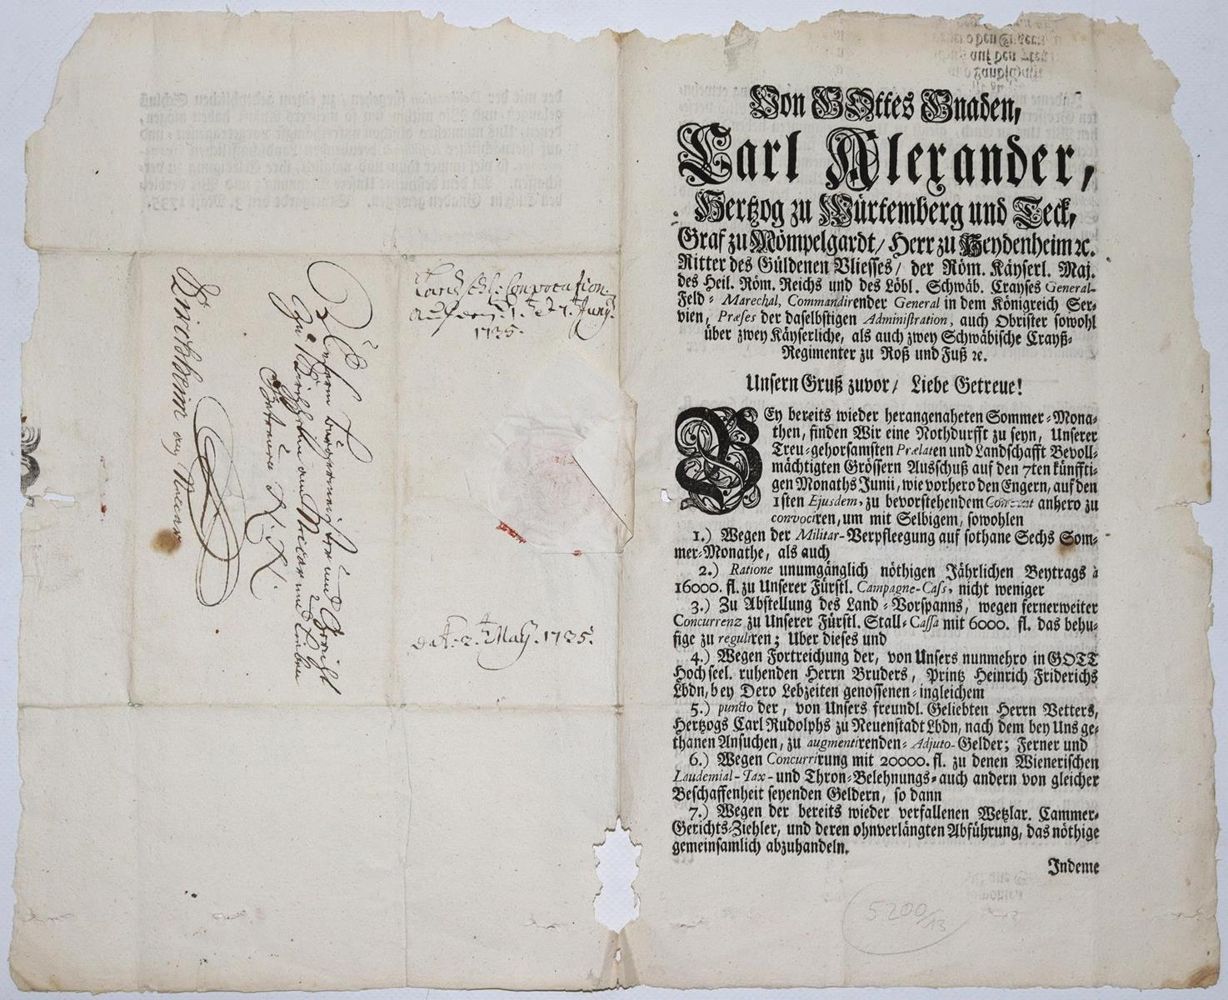 Von GOttes Gnaden,
Carl Alexander,
Hertzog zu Würtemberg und Teck,
Graf zu Mömpelgardt/ Herr zu Heydenheim ꝛc.
Ritter des Güldenen Vliesses/ der Röm. Käyserl. Maj.
des Heil. Röm. Reichs und des Löbl. Schwäb. Crayses General-
Feld-Marechal, Commandirender General in dem Königreich Ser-
vien, Præses der daselbstigen Administration, auch Obrister sowohl
über zwey Käyserliche, als auch zwey Schwäbische Crayß-
Regimenter zu Roß und Fuß ꝛc.
Unsern Gruß zuvor/ Liebe Getreue!
BEy bereits wieder herangenaheten Sommer-Mona-
then, finden Wir eine Nothdurfft zu seyn, Unserer
Treu-gehorsamsten Prælaten und Landschafft Bevoll-
mächtigten Grössern Ausschuß auf den 7ten künffti-
gen Monaths Junii, wie vorhero den Engern, auf den
1sten Ejusdem, zu bevorstehendem Convent anhero zu
convociren, um mit Selbigem, sowohlen
1.) Wegen der Militar-Verpfleegung auf sothane Sechs Som-
mer-Monathe, als auch
2.) Ratione unumgänglich nöthigen Jährlichen Beytrags à
16000. fl. zu Unserer Fürstl. Campagne-Cass, nicht weniger
3.) Zu Abstellung des Land-Vorspanns, wegen fernerweiter
Concurrenz zu Unserer Fürstl. Stall-Cassa mit 6000. fl. das behu-
fige zu reguliren; Uber dieses und
4.) Wegen Fortreichung der, von Unsers nunmehro in GOTT
Hochseel. ruhenden Herrn Bruders, Printz Heinrich Friderichs
Lbdn, bey Dero Lebzeiten genossenen-ingleichem
5.) puncto der, von Unsers freundl. Geliebten Herrn Vetters,
Hertzogs Carl Rudolphs zu Neuenstadt Lbdn, nach dem bey Uns ge-
thanen Ansuchen, zu augmentirenden-Adjuto-Gelder; Ferner und
6.) Wegen Concurrirung mit 20000. fl. zu denen Wienerischen
Laudemial-Tax-und Thron-Belehnungs-auch andern von gleicher
Beschaffenheit seyenden Geldern, so dann
7.) Wegen der bereits wieder verfallenen Wetzlar. Cammer-
Gerichts-Ziehler, und deren ohnverlängten Abführung, das nöthige
gemeinsamlich abzuhandeln.
Indeme
5200/13
Convocation
1735.
dat. 2. May. 1735.